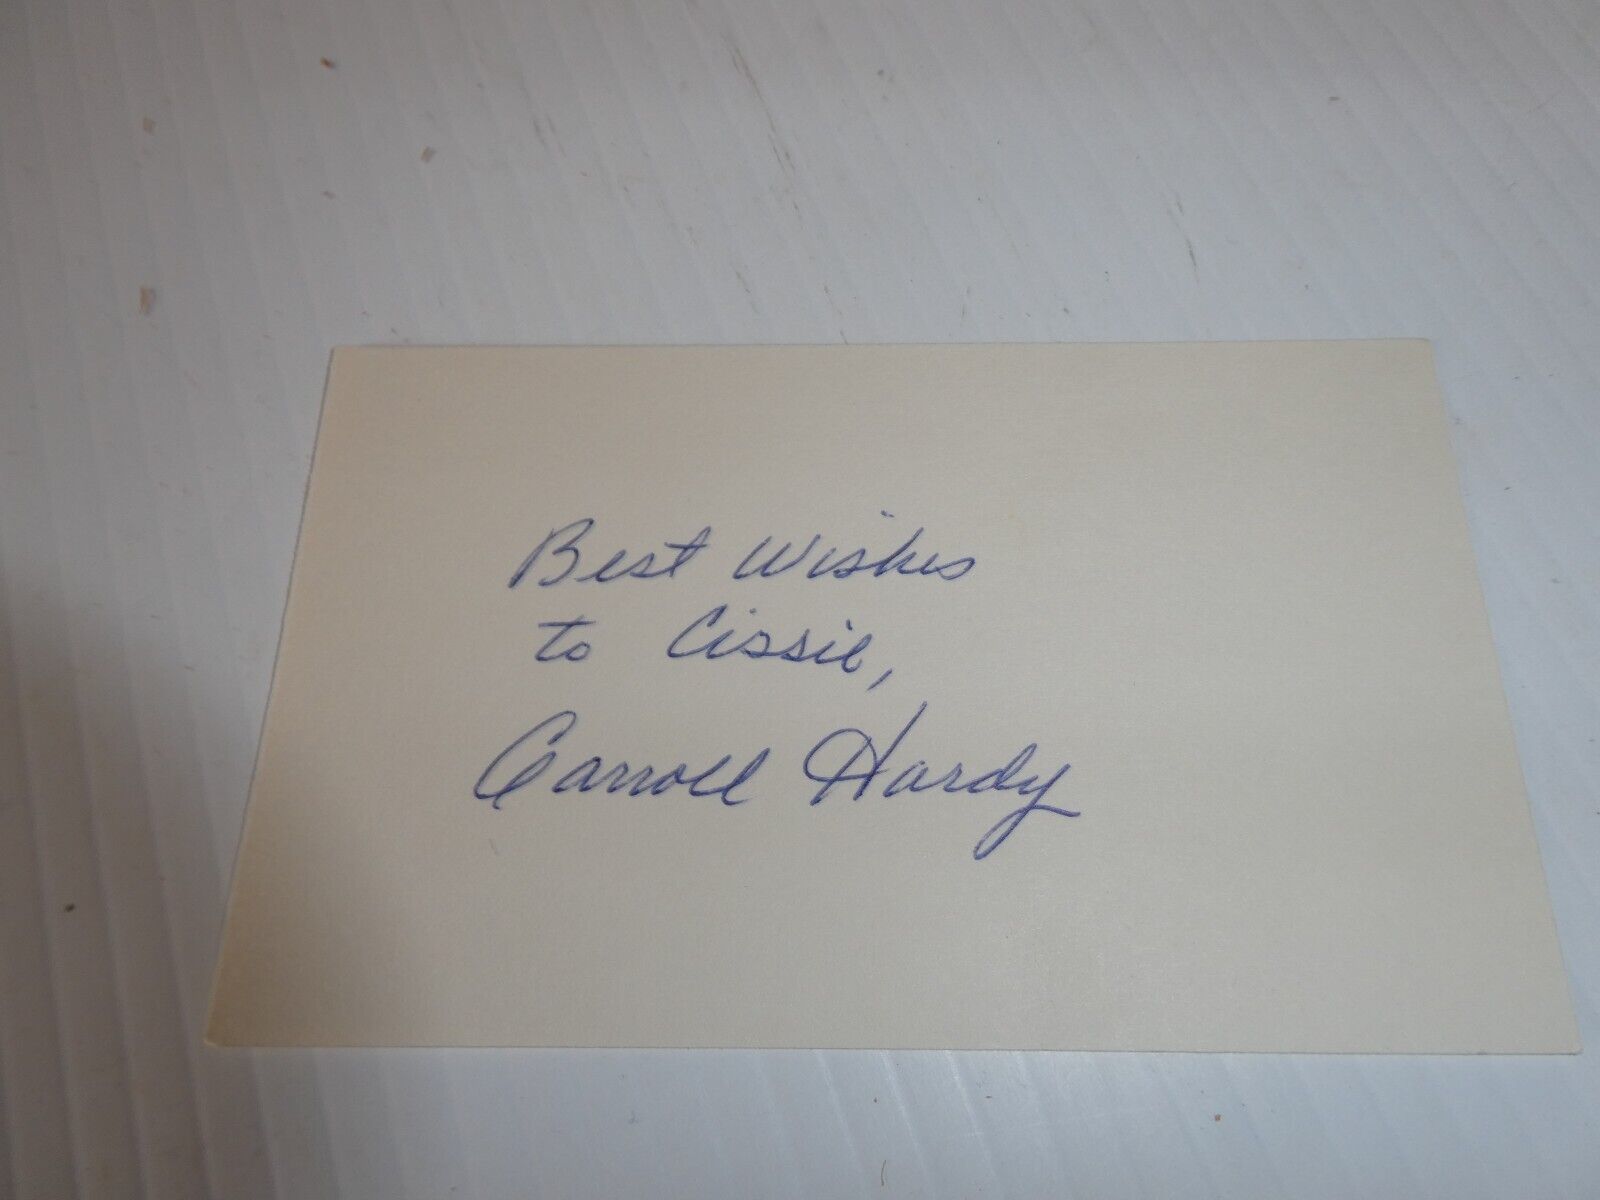 Best Wishes
to Cissie,
Carroll Hardy